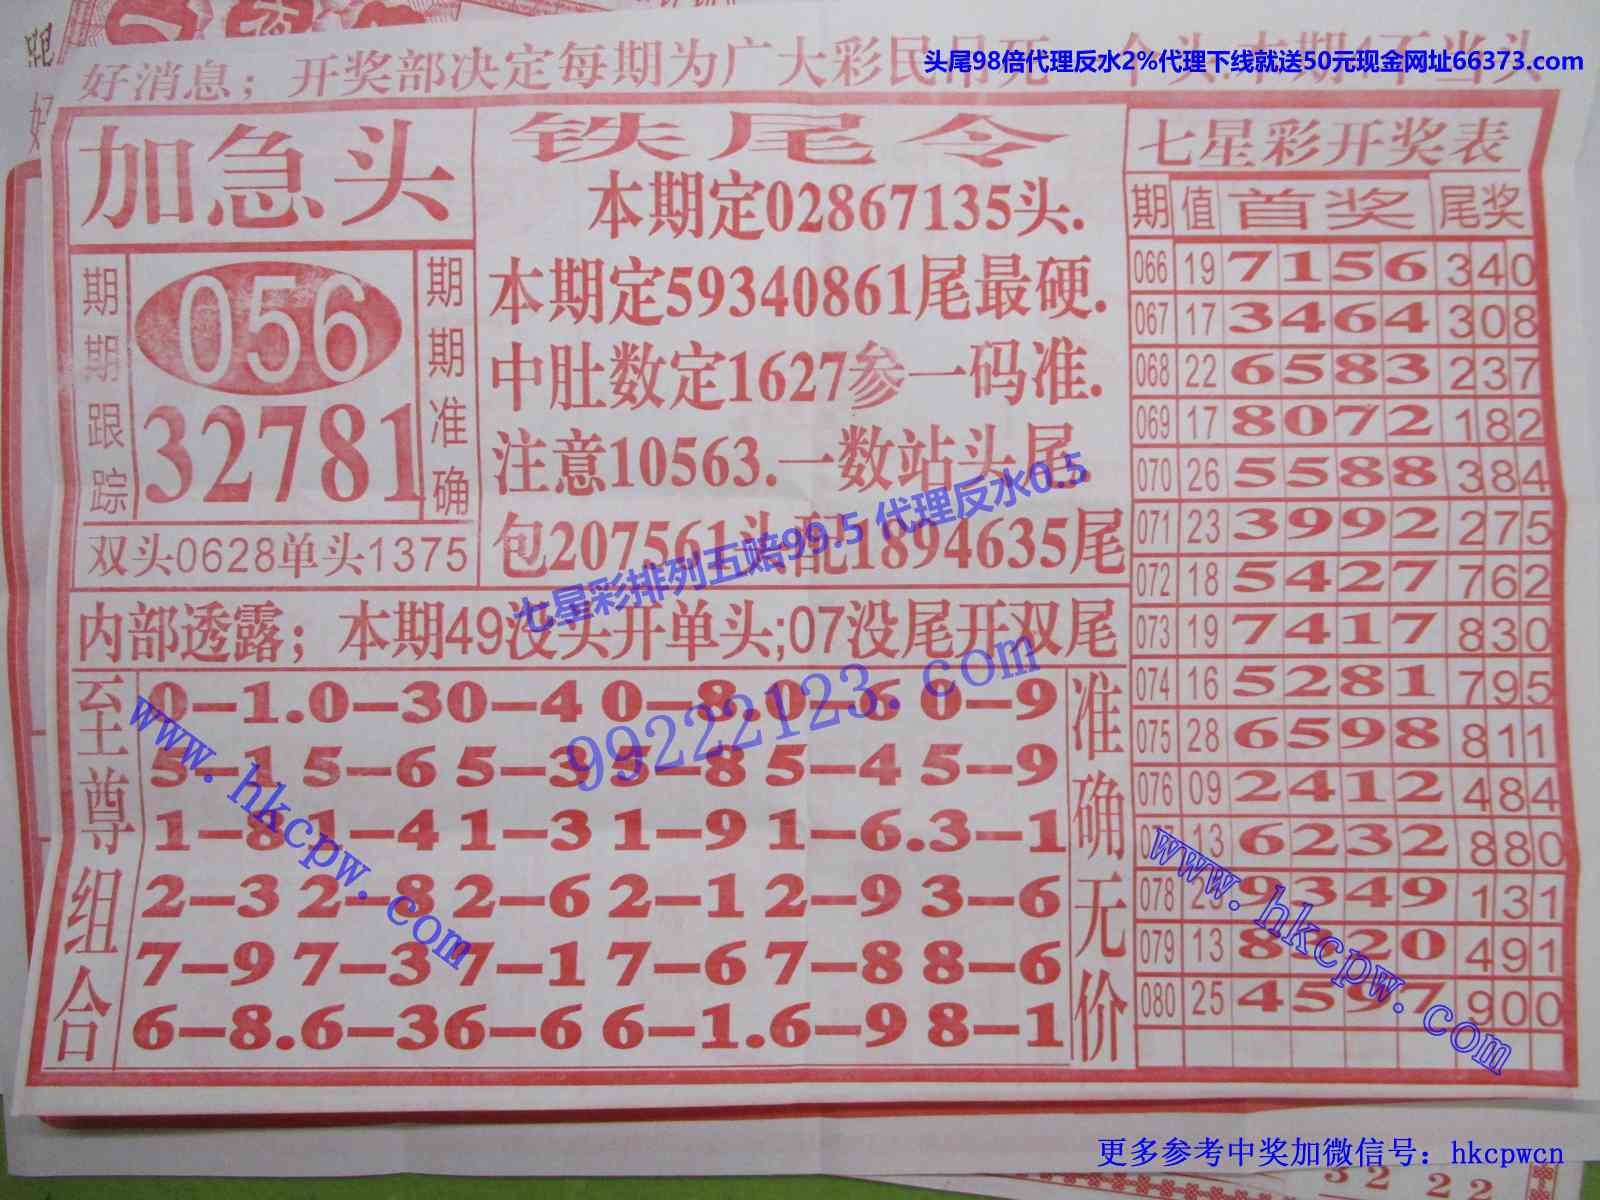 头尾98倍代理反水2%代理下线就送50元现金网址66373.com
好消息；开奖部决定每期为广大彩民
加急头
期期跟踪
056
32781
期期准确
双头0628单头1375
铁尾令
本期定02867135头.
本期定59340861尾最硬.
中肚数定1627参一码准.
注意10563.一数站头尾
包207561头配1894635尾
七星彩排列五赔99.5 代理反水0.5
内部透露；本期49没头开单头;07没尾开双尾
99222123.com
至尊组合
0-1.0-30-4 0-8.0-6 0-9
5-1 5-6 5-3 5-8 5-4 5-9
1-8 1-4 1-3 1-9 1-6.3-1
2-3 2-8 2-6 2-1 2-9 3-6
7-9 7-3 7-1 7-6 7-8 8-6
6-8.6-36-6 6-1.6-9 8-1
准确无价
www.hkcpw.com
七星彩开奖表
期 值 首奖 尾奖
066 19 7156 340
067 17 3464 308
068 22 6583 237
069 17 8072 182
070 26 5588 384
071 23 3992 275
072 18 5427 762
073 19 7417 830
074 16 5281 795
075 28 6598 811
076 09 2412 484
077 13 6232 880
078 25 9349 131
079 13 8 20 491
080 25 4597 900
www.hkcpw.com
更多参考中奖加微信号：hkcpwcn
32 22